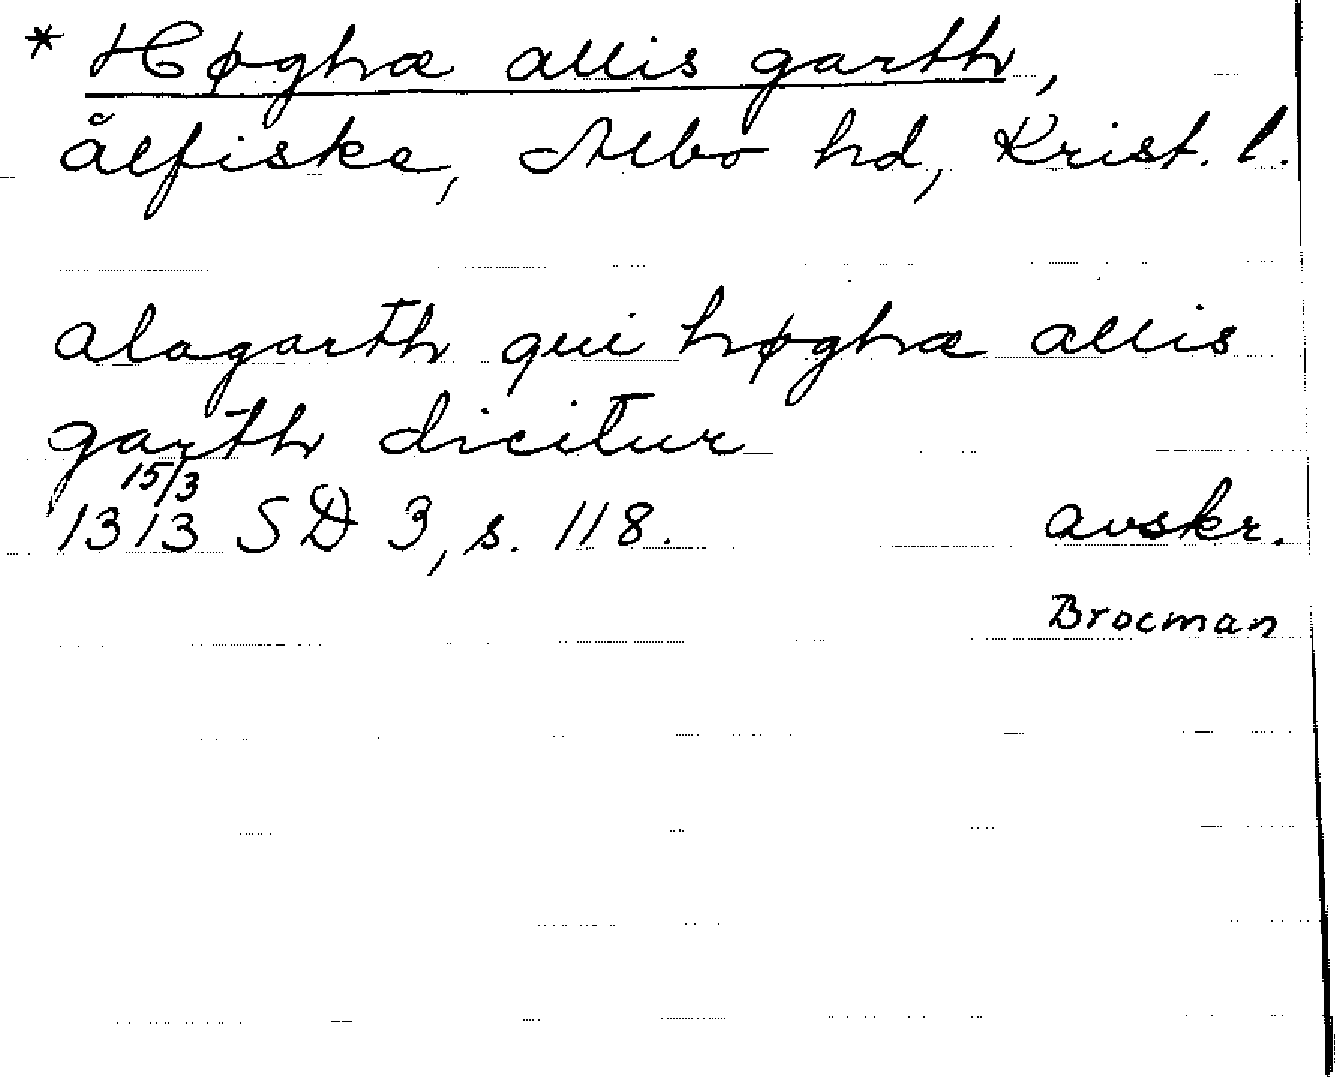 * Høghæ allis garth,
ålfiske, Albo hd, Krist. l.
alagarth qui høghæ allis
garth dicitur
15/3
1313 SD 3, s. 118. avskr.
Brocman